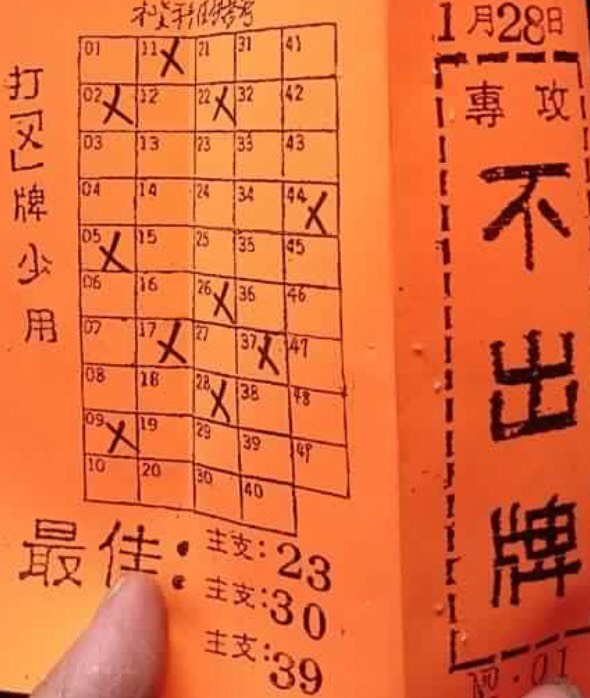 打「X」牌少用
01 11 X 21 31 41
02 X 12 22 X 32 42
03 13 23 33 43
04 14 24 34 44 X
05 X 15 25 35 45
06 16 26 X 36 46
07 17 X 27 37 X 47
08 18 28 X 38 48
09 X 19 29 39 49
10 20 30 40
最佳:
主支:23
主支:30
主支:39
1月28日
專攻
不出牌
NO.01